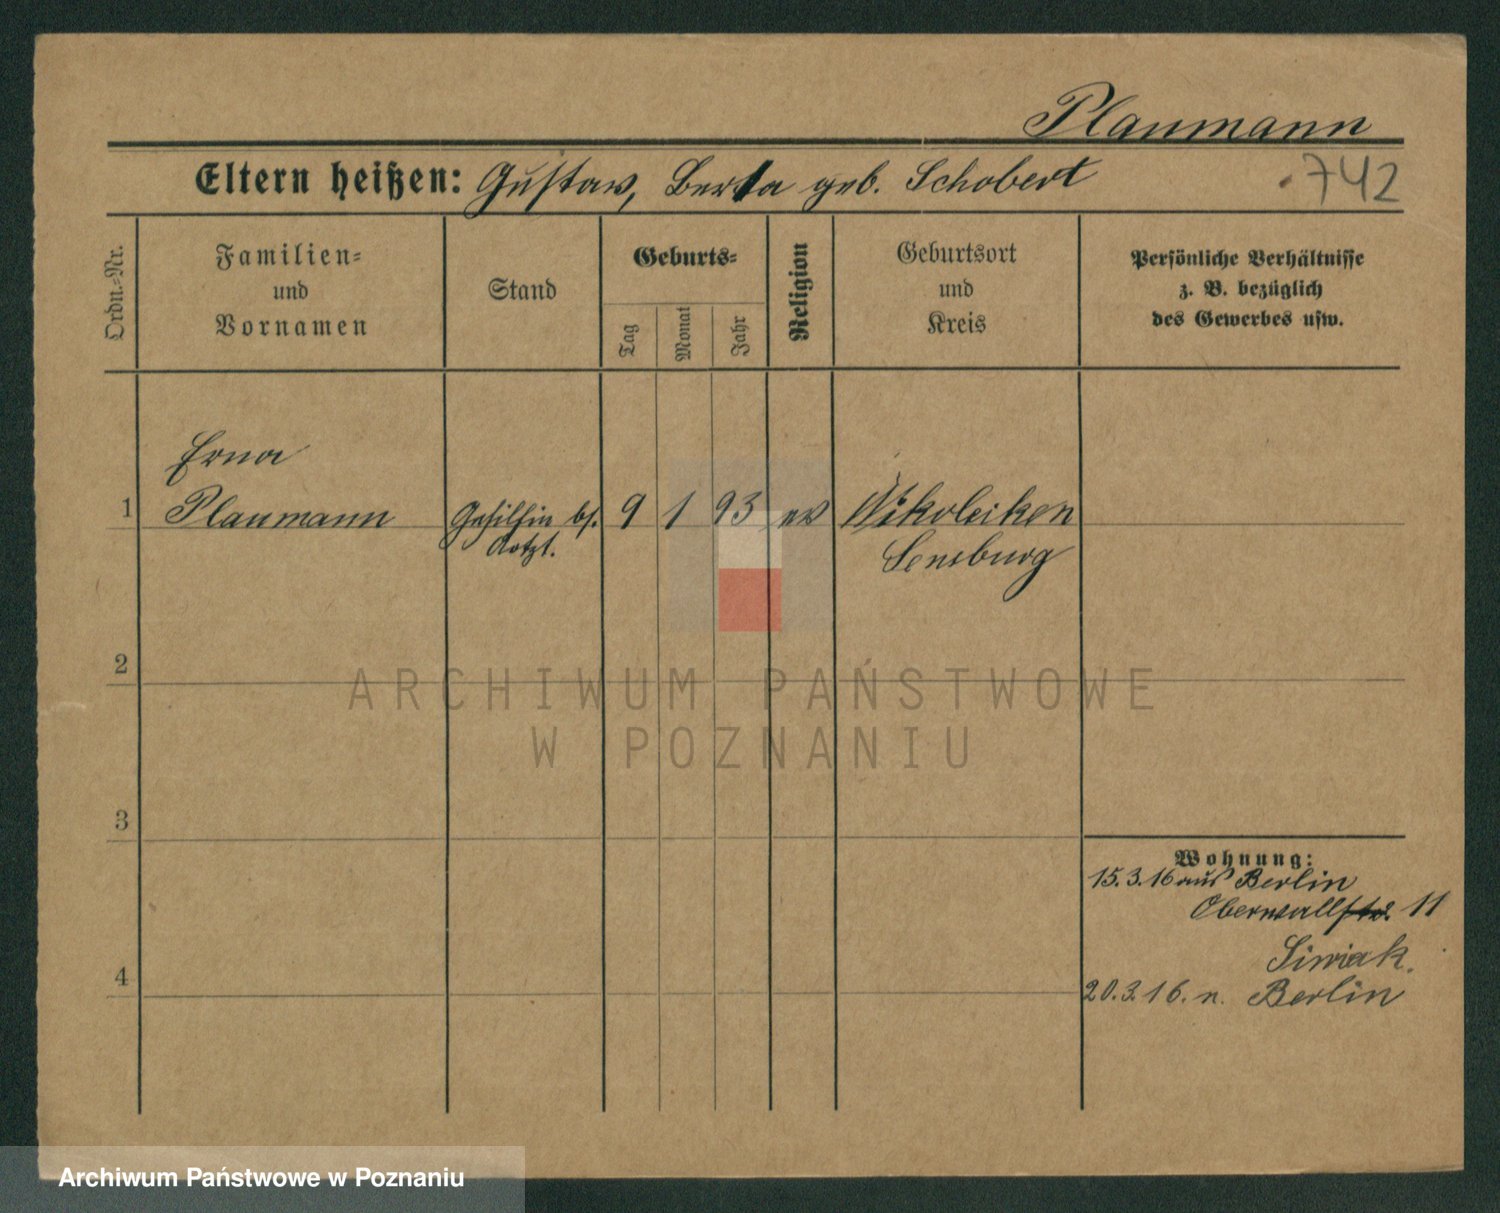 Plaumann
Eltern heißen: Gustav, Berta geb. Schobert
742
Ordn.-Nr.
Familien-
und
Vornamen
Stand
Geburts-
Tag
Monat
Jahr
Religion
Geburtsort
und
Kreis
Persönliche Verhältnisse
z. B. bezüglich
des Gewerbes usw.
Erna
1 Plaumann Gehilfin 9 1 93 ev Nikoleiken
Sensburg
2
ARCHIWUM PAŃSTWOWE
W POZNANIU
3
Wohnung:
15.3.16 aus Berlin
Oberwallstr. 11
4
20.3.16. n. Berlin
Archiwum Państwowe w Poznaniu